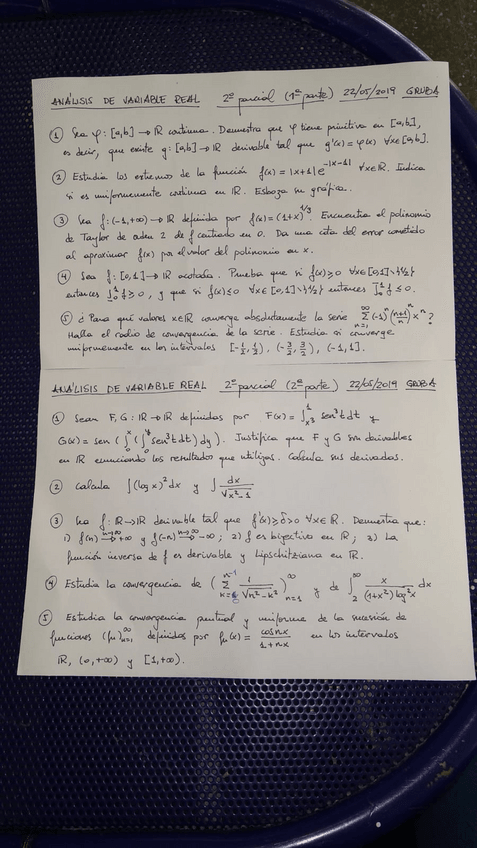 ANÁLISIS DE VARIABLE REAL 2º parcial (1ª parte) 22/05/2019 GRUPO A
① Sea φ: [a,b] → ℝ continua. Demuestra que φ tiene primitiva en [a,b],
es decir, que existe g: [a,b] → ℝ derivable tal que g'(x) = φ(x) ∀x∈[a,b].
② Estudia los extremos de la función f(x) = |x+1| e^{-|x-1|} ∀x∈ℝ. Indica
si es uniformemente continua en ℝ. Esboza su gráfica.
③ Sea f: (-1,+∞) → ℝ definida por f(x) = (1+x)^{1/3}. Encuentra el polinomio
de Taylor de orden 2 de f centrado en 0. Da una cota del error cometido
al aproximar f(x) por el valor del polinomio en x.
④ Sea f: [0,1] → ℝ acotada. Prueba que si f(x) ≥ 0 ∀x∈[0,1]\{½}
entonces ∫₀¹ f ≥ 0, y que si f(x) ≤ 0 ∀x∈[0,1]\{½} entonces ∫₀¹ f ≤ 0.
⑤ ¿Para qué valores x∈ℝ converge absolutamente la serie ∑_{n=1}^{∞} (-1)^n ((n+1)/n)^n x^n?
Halla el radio de convergencia de la serie. Estudia si converge
uniformemente en los intervalos [-½,½], (-3/2, 3/2), (-1,1].
ANÁLISIS DE VARIABLE REAL 2º parcial (2ª parte) 22/05/2019 GRUPO A
① Sean F, G: ℝ → ℝ definidas por F(x) = ∫_{x³}^{1} sen³t dt y
G(x) = sen(∫₀ˣ(∫₀ʸ sen³t dt) dy). Justifica que F y G son derivables
en ℝ enunciando los resultado que utilizas. Calcula sus derivadas.
② Calcula ∫(log x)² dx y ∫ dx/√(x²-1)
③ Sea f: ℝ → ℝ derivable tal que f'(x) ≥ δ > 0 ∀x∈ℝ. Demuestra que:
1) f(n) →^{n→∞} +∞ y f(-n) →^{n→∞} -∞; 2) f es biyectiva en ℝ; 3) La
función inversa de f es derivable y Lipschitziana en ℝ.
④ Estudia la convergencia de (∑_{k=0}^{n-1} 1/√(n²-k²))_{n=1}^{∞} y de ∫₂^∞ x/((1+x²) log²x) dx
⑤ Estudia la convergencia puntual y uniforme de la sucesión de
funciones (fₙ)_{n=1}^{∞} definidas por fₙ(x) = cos nx/(1+nx) en los intervalos
ℝ, (0,+∞) y [1,+∞).